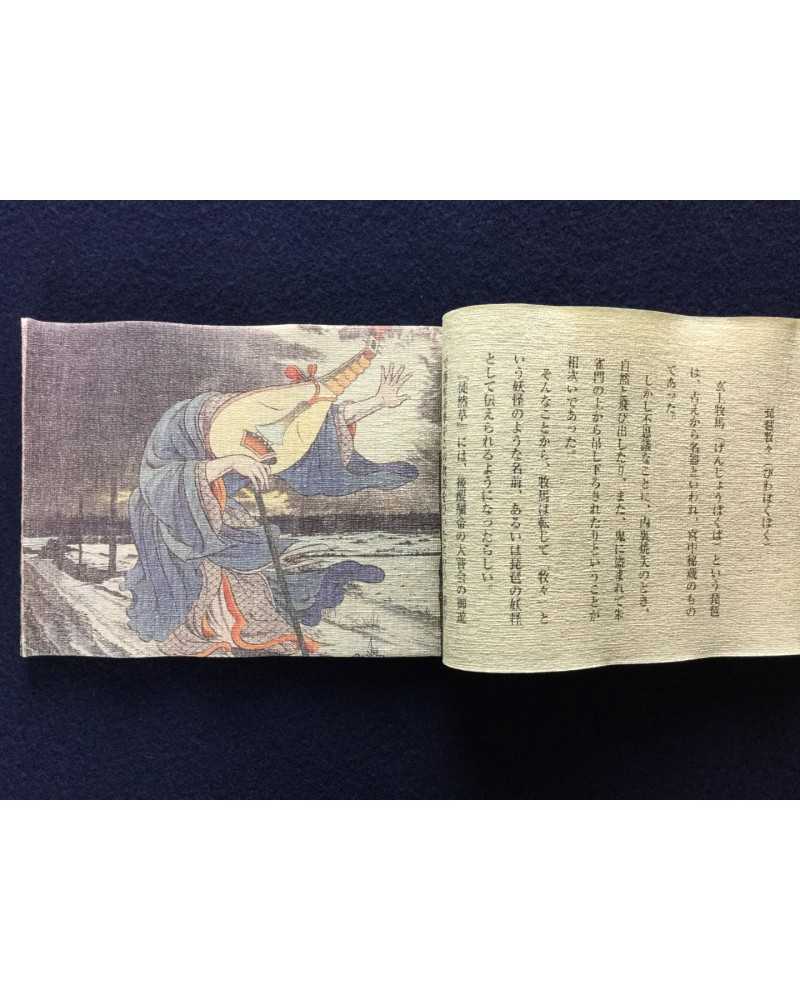 琵琶牧々（びわぼくぼく）
玄上牧馬（げんじょうぼくば）という琵琶
は、古えから名器といわれ、宮中秘蔵のもの
であった。
しかし不思議なことに、内裏焼失のとき、
自然と飛び出したり、また、鬼に盗まれて朱
雀門の上から吊し下ろされたりということが
相次いであった。
そんなことから、牧馬は転じて「牧々」と
いう妖怪のような名前、あるいは琵琶の妖怪
として伝えられるようになったらしい
『徒然草』には、後醍醐帝の大嘗会の御遊